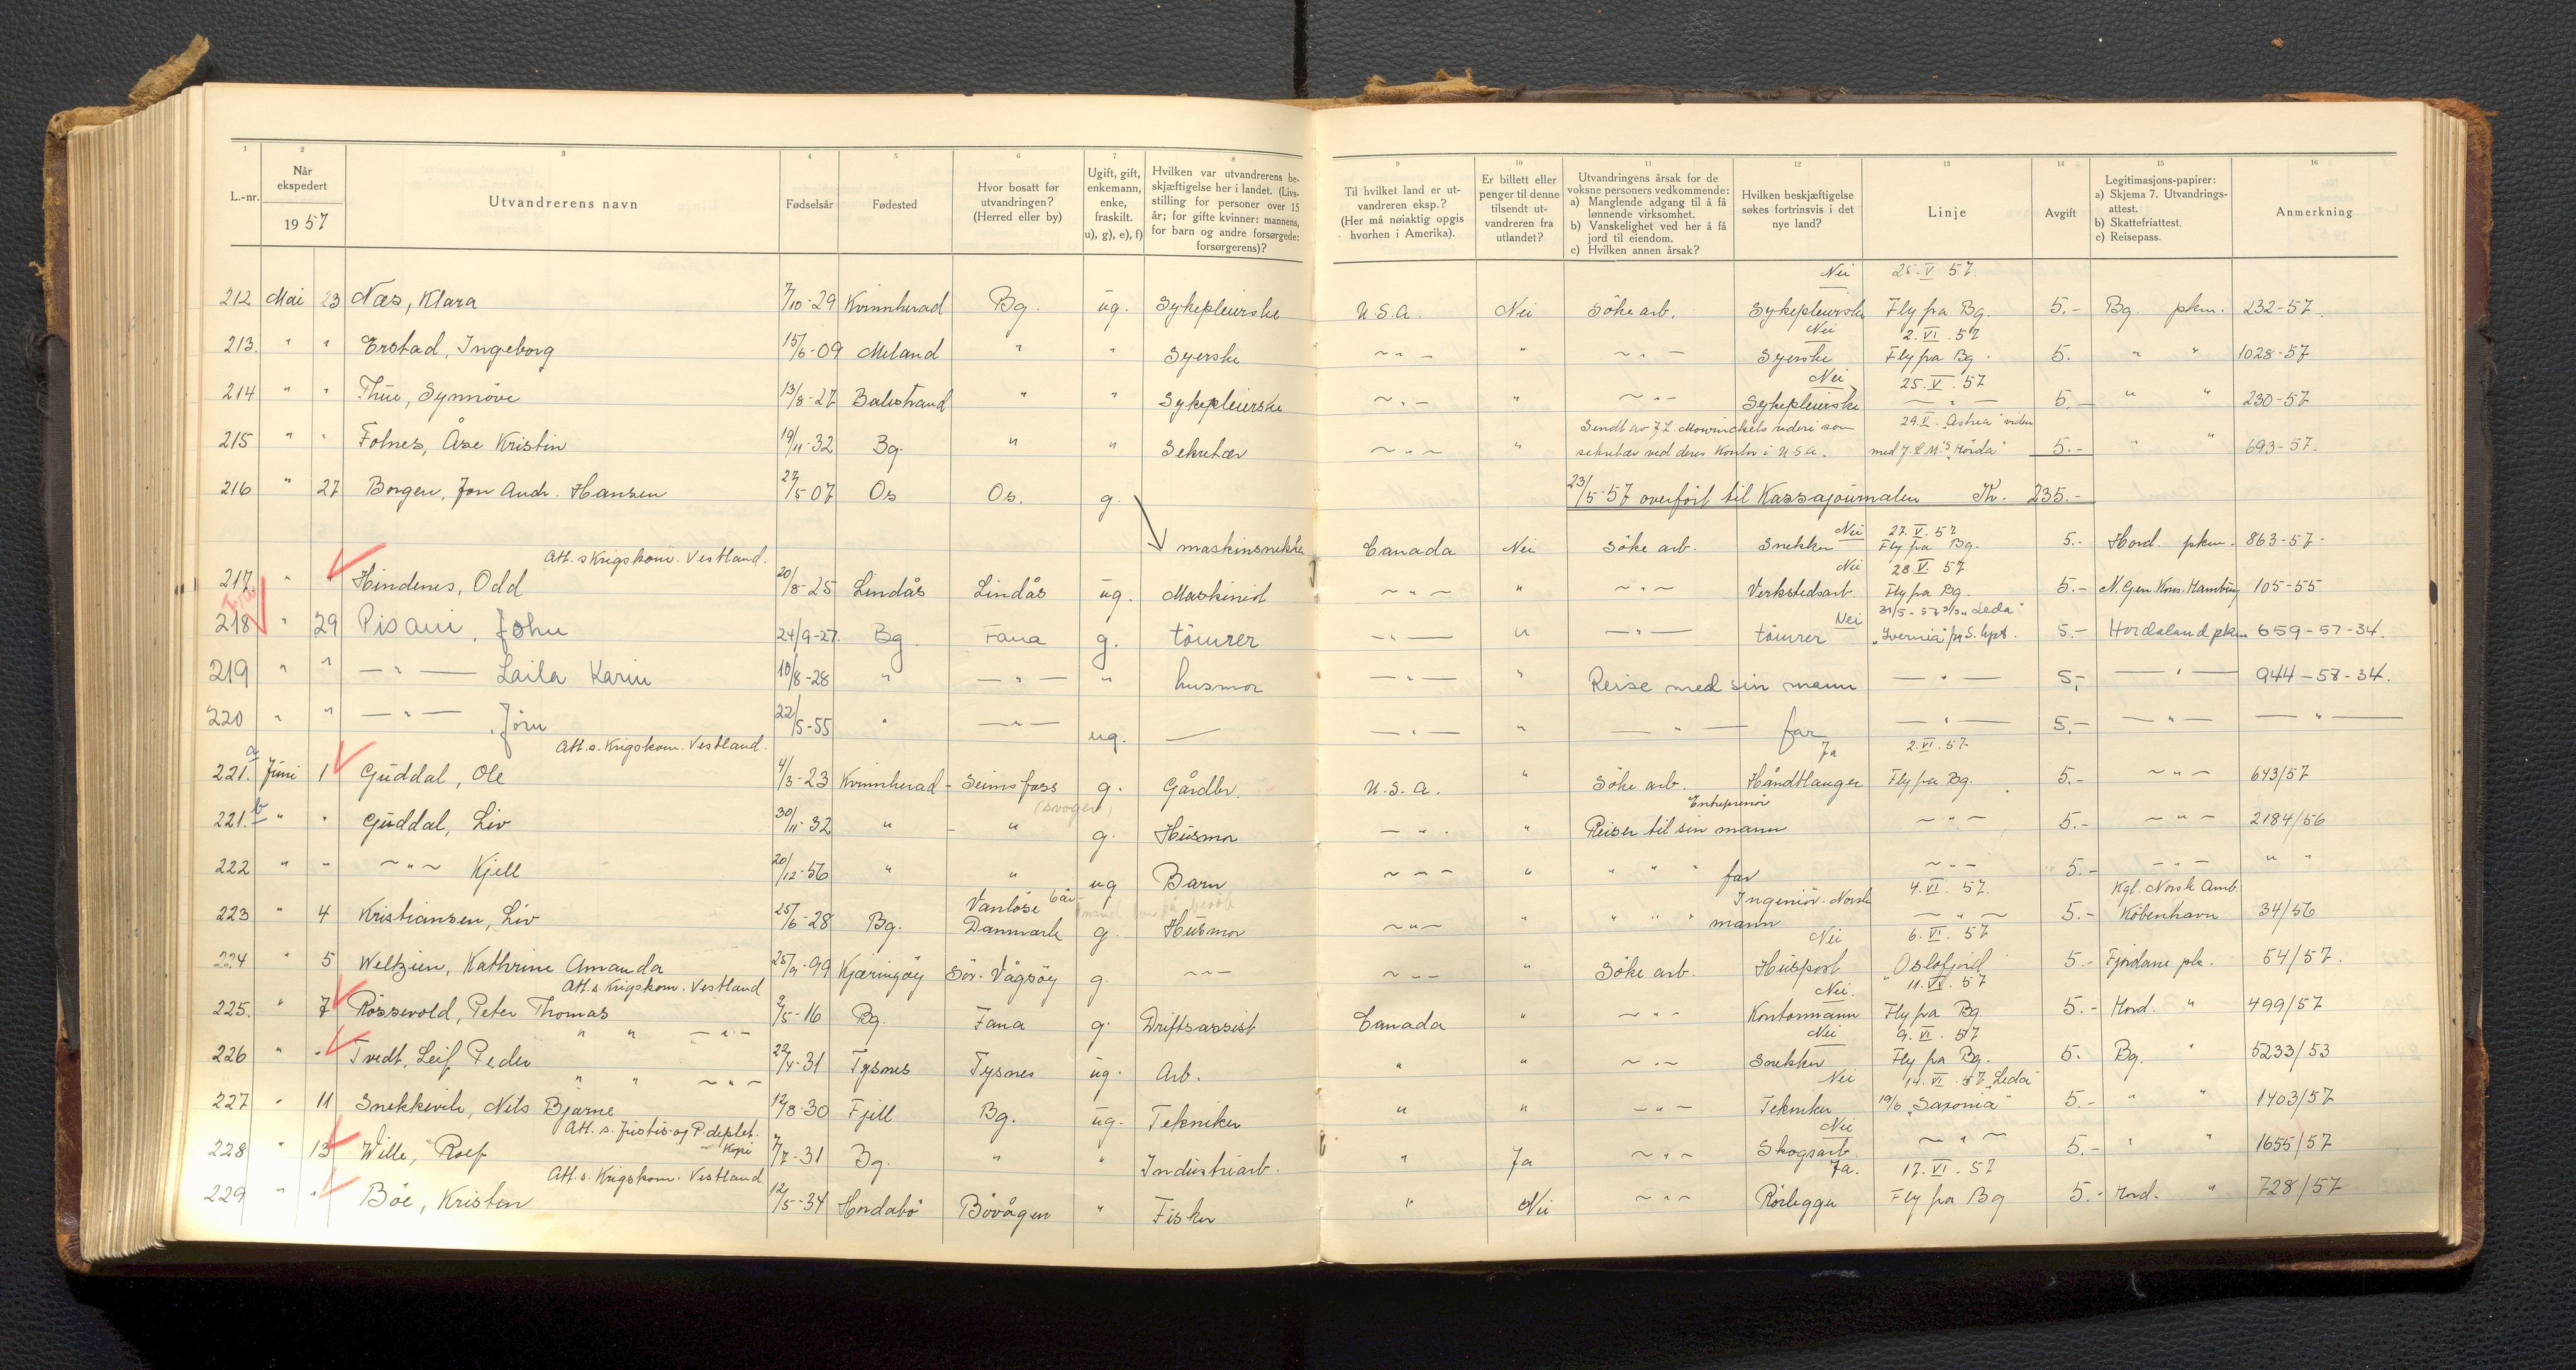 1 2 3 4 5 6 7 8 9 10 11 12 13 14 15 16
L.-nr. Når ekspedert 1957 Utvandrerens navn Fødselsår Fødested Hvor bosatt før utvandringen? (Herred eller by) Ugift, gift, enkemann, enke, fraskilt. u), g), e), f) Hvilken var utvandrerens beskjæftigelse her i landet. (Livsstilling for personer over 15 år; for gifte kvinner: mannens, for barn og andre forsørgede: forsørgerens)? Til hvilket land er utvandreren eksp.? (Her må nøiaktig opgis hvorhen i Amerika). Er billett eller penger til denne tilsendt utvandreren fra utlandet? Utvandringens årsak for de voksne personers vedkommende: a) Manglende adgang til å få lønnende virksomhet. b) Vanskelighet ved her å få jord til eiendom. c) Hvilken annen årsak? Hvilken beskjæftigelse søkes fortrinsvis i det nye land? Linje Avgift Legitimasjons-papirer: a) Skjema 7. Utvandringsattest. b) Skattefriattest. c) Reisepass. Anmerkning
Nei 25.V 57.
212 Mai 23 Næs, Klara 7/10-29 Kvinnherad Bg. ug. Sykepleierske U.S.A. Nei Söke arb. Sykepleierske Fly fra Bg. 5.- Bg. pkm. 232-57.
Nei 2.VI.57
213. " " Erstad, Ingeborg 15/6-09 Meland " " Syerske ~"~ " ~"~ Syerske Fly fra Bg. 5. " " 1028-57
Nei 25.V.57
214 " " Thue, Synnöve 13/8-27 Balestrand " " Sykepleierske ~"~ " ~"~ Sykepleierske —"— 5.- " " 230-57
Sendt av J.L. Mowinckels rederi som 29.V. "Astrea" videre
215 " " Folnes, Åse Kristin 19/11-32 Bg. " " Sekretær ~"~ " sekretær ved deres Kontor i U.S.A. med J.L.M's "Hörda" 5.- " " 693-57.
216 " 27 Borgen, Jon Andr. Hansen 27/5 07 Os Os. g. 23/5-57 overfört til Kassajournalen Kr. 235.-
Nei 27.V.57
maskinsnekker Canada Nei Söke arb. Snekker Fly fra Bg. 5.- Hord. pkm. 863-57-
Att. s Krigskom. Vestland. Nei 28 V. 57
217. " " Hindenes, Odd 20/8-25 Lindås Lindås ug. Maskinist ~"~ " ~"~ Verkstedsarb. Fly fra Bg. 5.- N. Gen. Kons. Hamburg 105-55
Nei 31/5-57 "Leda"
218 " 29 Pisani, John 24/9-27. Bg. Fana g. tömrer —"— " —"— tömrer "Ivernia" fra S. hpt. 5.- Hordaland pkm 659-57-34.
219 " " —"— Laila Karin 10/8-28 " —"— " husmor —"— " Reise med sin mann —"— 5,- —"— 944-58-34.
220 " " —"— Jörn 22/5-55 " —"— ug. — —"— " —"— far —"— 5.- —"— —"—
Att. s. Krigskom. Vestland. Ja 2.VI.57
221.a Juni 1 Guddal, Ole 4/3-23 Kvinnherad - Seimsfoss g. Gårdbr. U.S.A. " Söke arb. Håndtlanger Fly fra Bg. 5.- ~"~ 643/57
(svoger) Entreprenör
221.b " " Guddal, Liv 30/11-32 " - " g. Husmor —". " Reiser til sin mann ~"~ 5.- ~"~ 2184/56
222 " " ~"~ Kjell 20/12-56 " " ug Barn ~"~ " " " " far ~"~ 5.- ~"~ " "
Vanlöse 6 år Ingeniör. Norsk 4.VI.57. Kgl. Norsk Amb.
223 " 4 Kristiansen, Liv 25/6-28 Bg. Danmark g. Husmor ~"~ " " " " mann —"~ 5.- Köbenhavn 34/56
Nei 6.VI.57
224 " 5 Weltzien, Kathrine Amanda 25/9-99 Kjæringöy Sör-Vågsöy g. ~"~ ~"~ " Söke arb. Huspost "Oslofjord" 5.- Fjordane pk. 54/57.
Att. s Krigskom. Vestland Nei. 11.VI.57
225. " 7 Rössevold, Peter Thomas 9/5-16 Bg. Fana g. Driftsassist Canada " ~"~ Kontormann Fly fra Bg 5.- Hord. " 499/57
" " —"— Nei 9.VI.57
226 " " Tvedt, Leif Peder 22/4-31 Tysnes Tysnes ug. Arb. " " ~"~ Snekker Fly fra Bg. 5. Bg. " 5233/53
" " ~"~ Nei 14.VI.57 "Leda"
227 " 11 Snekkevik, Nils Bjarne 12/8-30 Fjell Bg. ug. Tekniker " " —"— Tekniker 19/6 "Saxonia" 5.- " " 1403/57
Att. s. Justis- og P. deptet. Kopi Nei
228 " 13 Wille, Rolf 7/7-31 Bg. " " Industriarb. " Ja ~"~ Skogsarb. ~"~ 5.- " " 1655/57
Att. s. Krigskom. Vestland Ja. 17.VI.57
229 " " Böe, Kristen 12/5-34 Hordabö Bövågen " Fisker " Nei ~"~ Rörlegger Fly fra Bg 5.- Hord. " 728/57